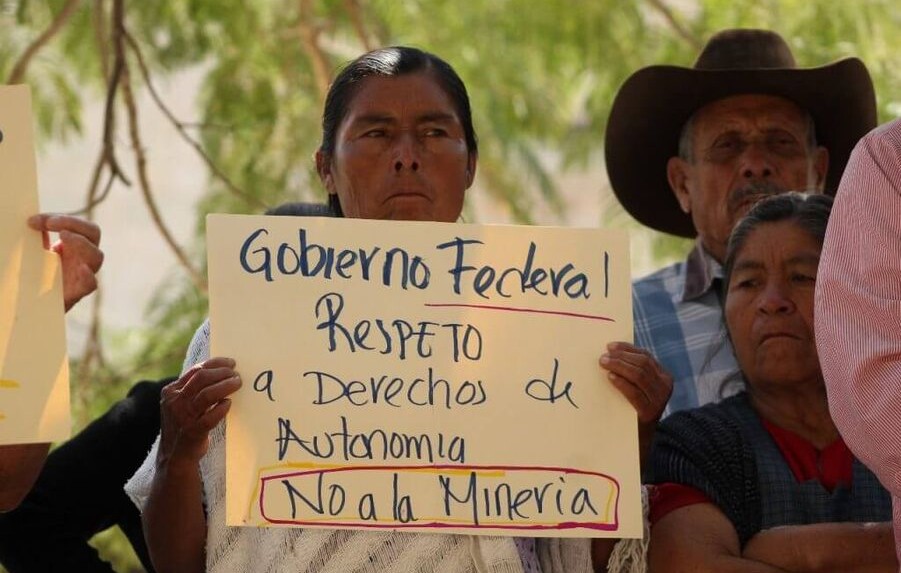 Gobierno Federal
RESPETO
a Derechos de
Autonomia
No a la Mineria